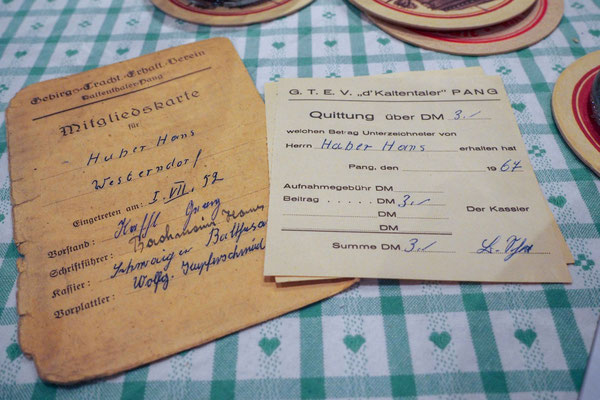 Gebirgs-Tracht-Erhalt.Verein
Kaltenthaler-Pang
Mitgliedskarte
für
Huber Hans
Westerndorf
Eingetreten am: I. VII. 52
Vorstand:
Schriftführer:
Kassier:
Vorplattler: Wolfg.
G. T. E. V. „d'Kaltentaler" PANG
Quittung über DM 3.-
welchen Betrag Unterzeichneter von
Herrn Huber Hans erhalten hat
Pang, den 1967
Aufnahmegebühr DM
Beitrag . . . . . DM 3.-
DM
Der Kassier
DM
Summe DM 3.-